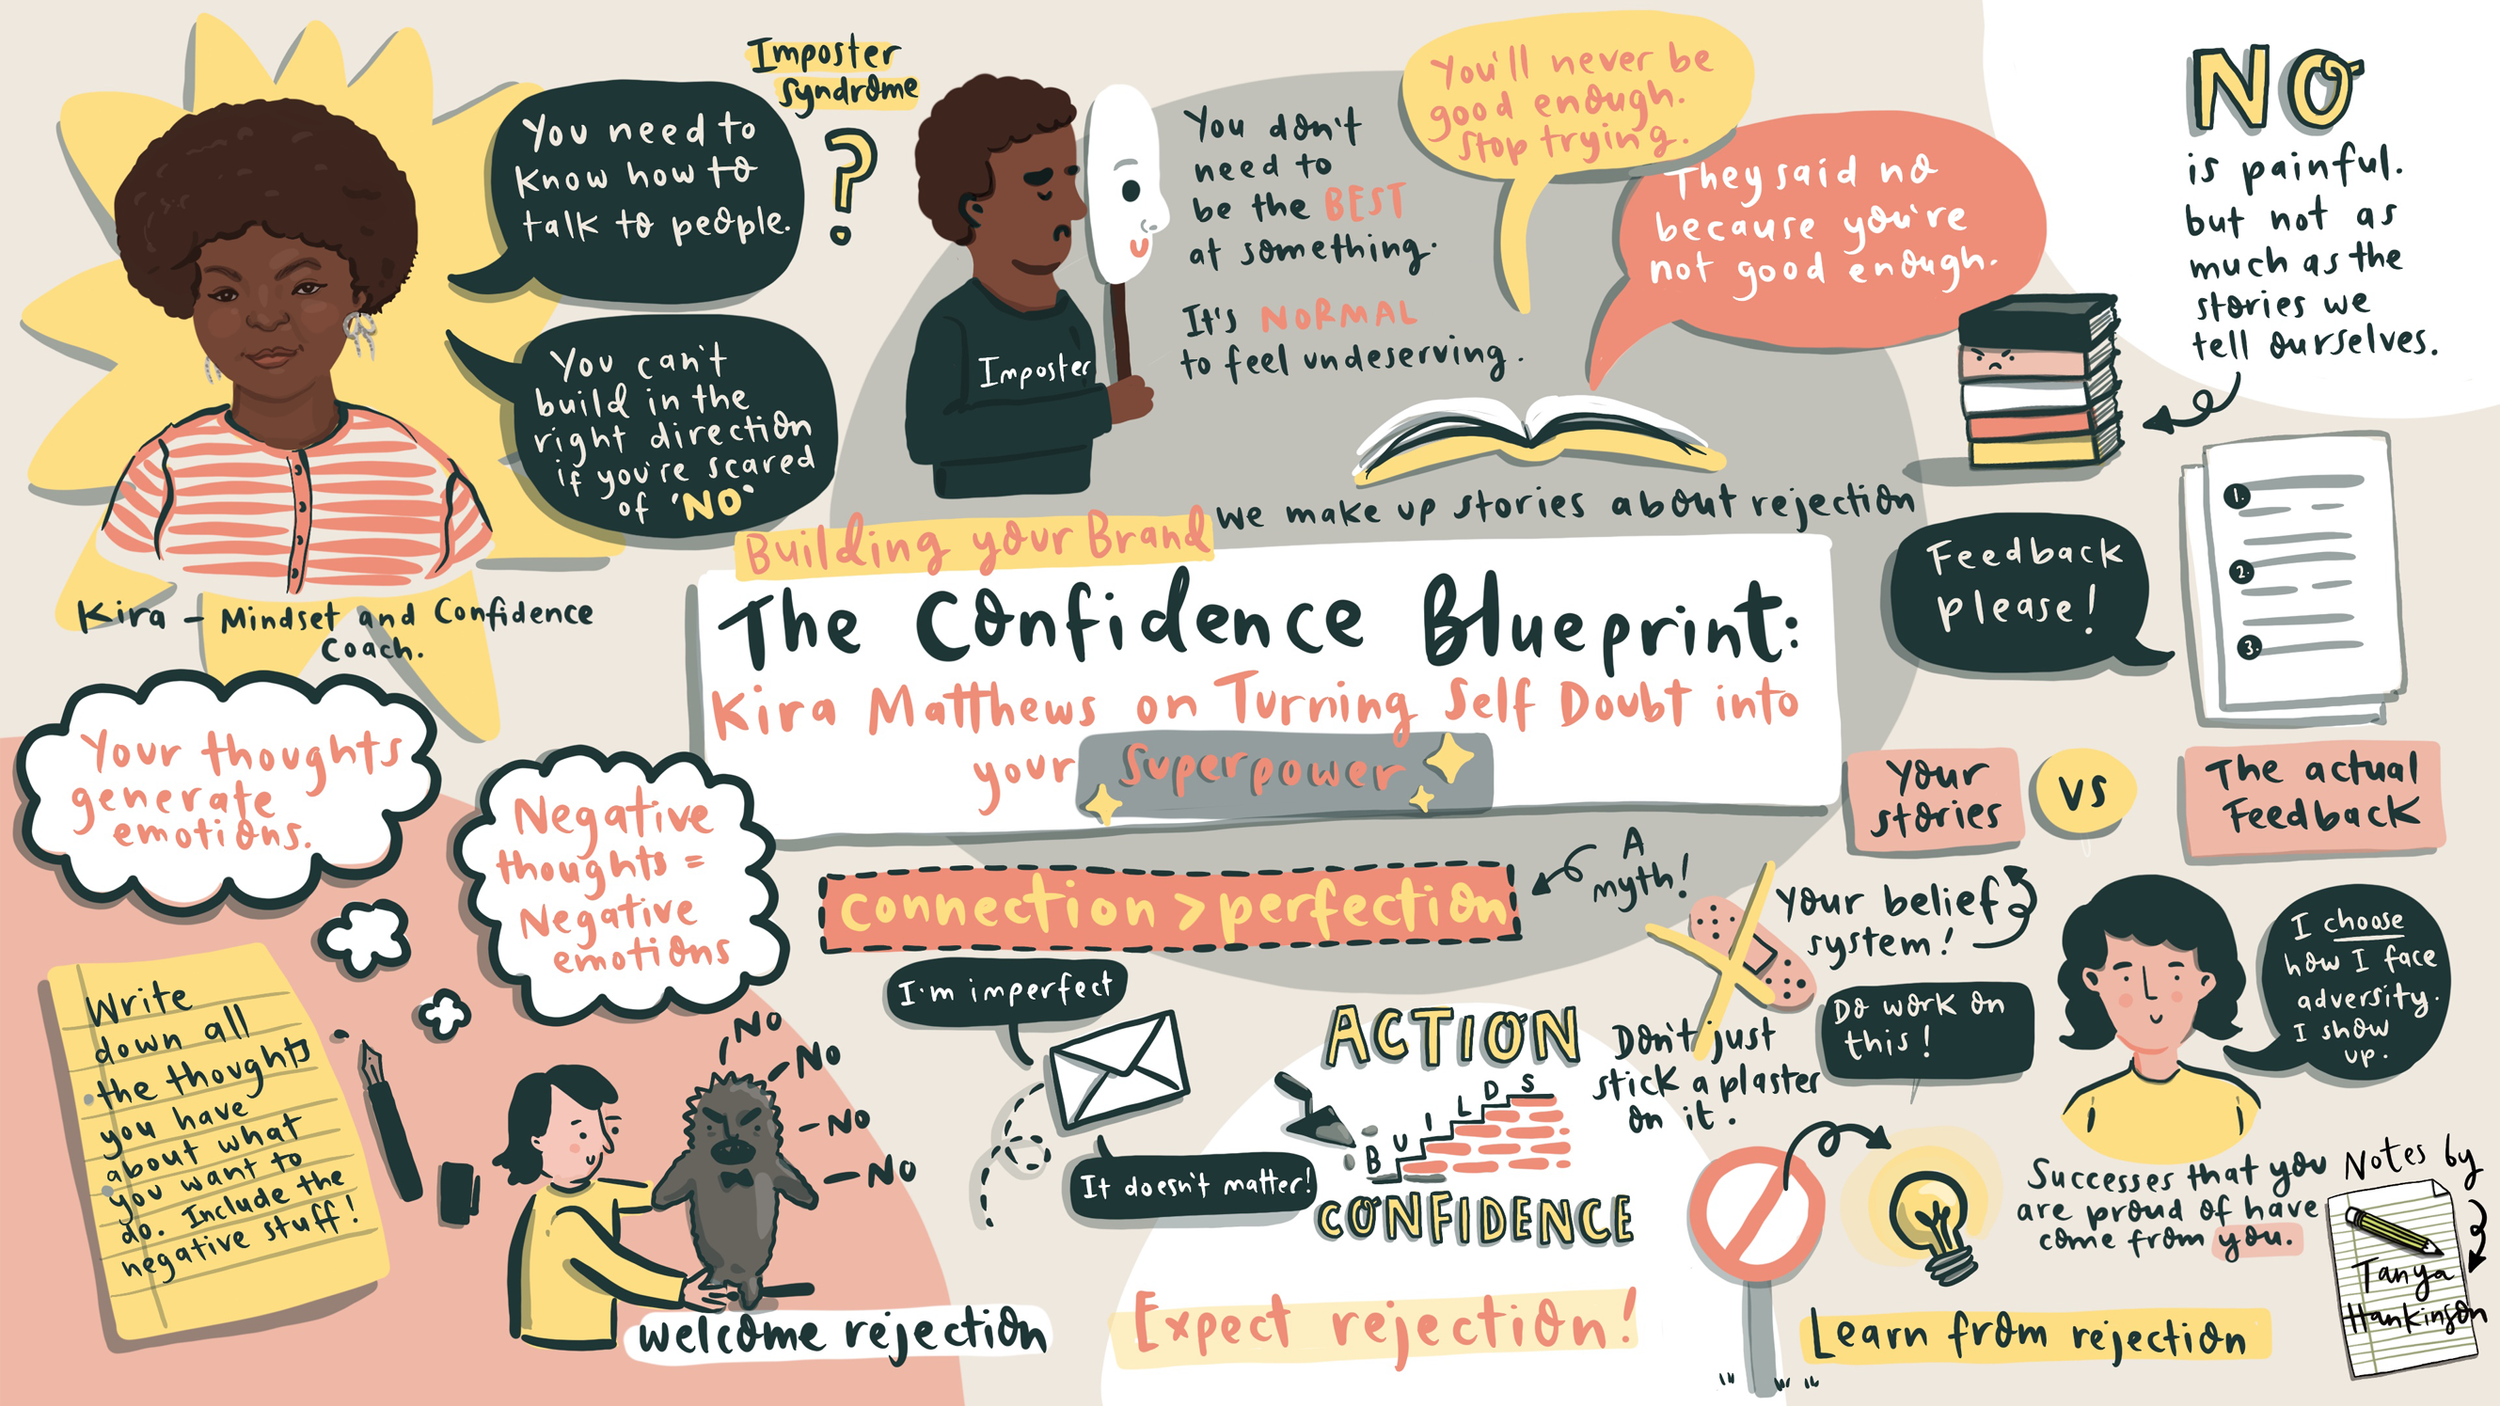 Imposter
syndrome
?
You need to
know how to
talk to people.
You can't
build in the
right direction
if you're scared
of 'NO'
Kira – Mindset and Confidence
Coach.
Imposter
You don't
need to
be the BEST
at something.
It's NORMAL
to feel undeserving.
You'll never be
good enough.
Stop trying.
They said no
because you're
not good enough.
we make up stories about rejection
NO
is painful.
but not as
much as the
stories we
tell ourselves.
Building your Brand
The Confidence Blueprint:
Kira Matthews on Turning Self Doubt into
your Superpower
Feedback
please!
1.
2.
3.
Your
stories
VS
The actual
Feedback
Your thoughts
generate
emotions.
Negative
thoughts =
Negative
emotions
Write
down all
the thoughts
you have
about what
you want to
do. Include the
negative stuff!
No
No
No
No
welcome rejection
connection > perfection
A
myth!
I'm imperfect
It doesn't matter!
ACTION
BUILDS
CONFIDENCE
Expect rejection!
Your belief
system!
Do work on
this!
Don't just
stick a plaster
on it.
I choose
how I face
adversity.
I show
up.
Successes that you
are proud of have
come from you.
Learn from rejection
Notes by
Tanya
Hankinson